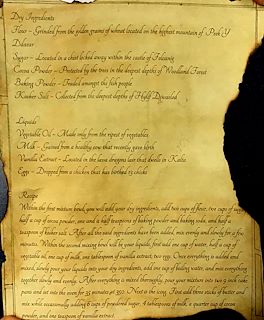 Dry Ingredients
Flour - Grinded from the golden grains of wheat located on the highest mountain of Peek Y
Dilatar
Sugar - Located in a chest locked away within the castle of
Cocoa Powder - Protected by the trees in the deepest depths of Woodland Forest
Baking Powder - Traded amongst the fish people
Kosher Salt - Collected from the deepest depths of
Liquids
Vegetable Oil - Made only from the ripest of vegetables
Milk - Gained from a healthy cow that recently gave birth
Vanilla Extract - Located in the lava dragons lair that dwells in
Eggs - Dropped from a chicken that has birthed 13 chicks
Recipe
Within the first mixing bowl, you will add your dry ingredients, add two cups of flour, two cups of sugar,
half a cup of cocoa powder, one and a half teaspoons of baking powder and baking soda, and half a
teaspoon of kosher salt. After all the said ingredients have been added, mix evenly and slowly for a few
minutes. Within the second mixing bowl will be your liquids, first add one cup of water, half a cup of
vegetable oil, one cup of milk, one tablespoon of vanilla extract, two eggs. Once everything is added and
mixed, slowly pour your liquids into your dry ingredients, add one cup of boiling water, and mix everything
together slowly and evenly. After everything is mixed thoroughly, pour your mixture into two 9 inch cake
pans and set into the oven for 35 minutes at 350. Next is the icing. First add three sticks of butter and
mix while occasionally adding 6 cups of powdered sugar, 4 tablespoons of milk, a quarter cup of cocoa
powder, and one teaspoon of vanilla extract.